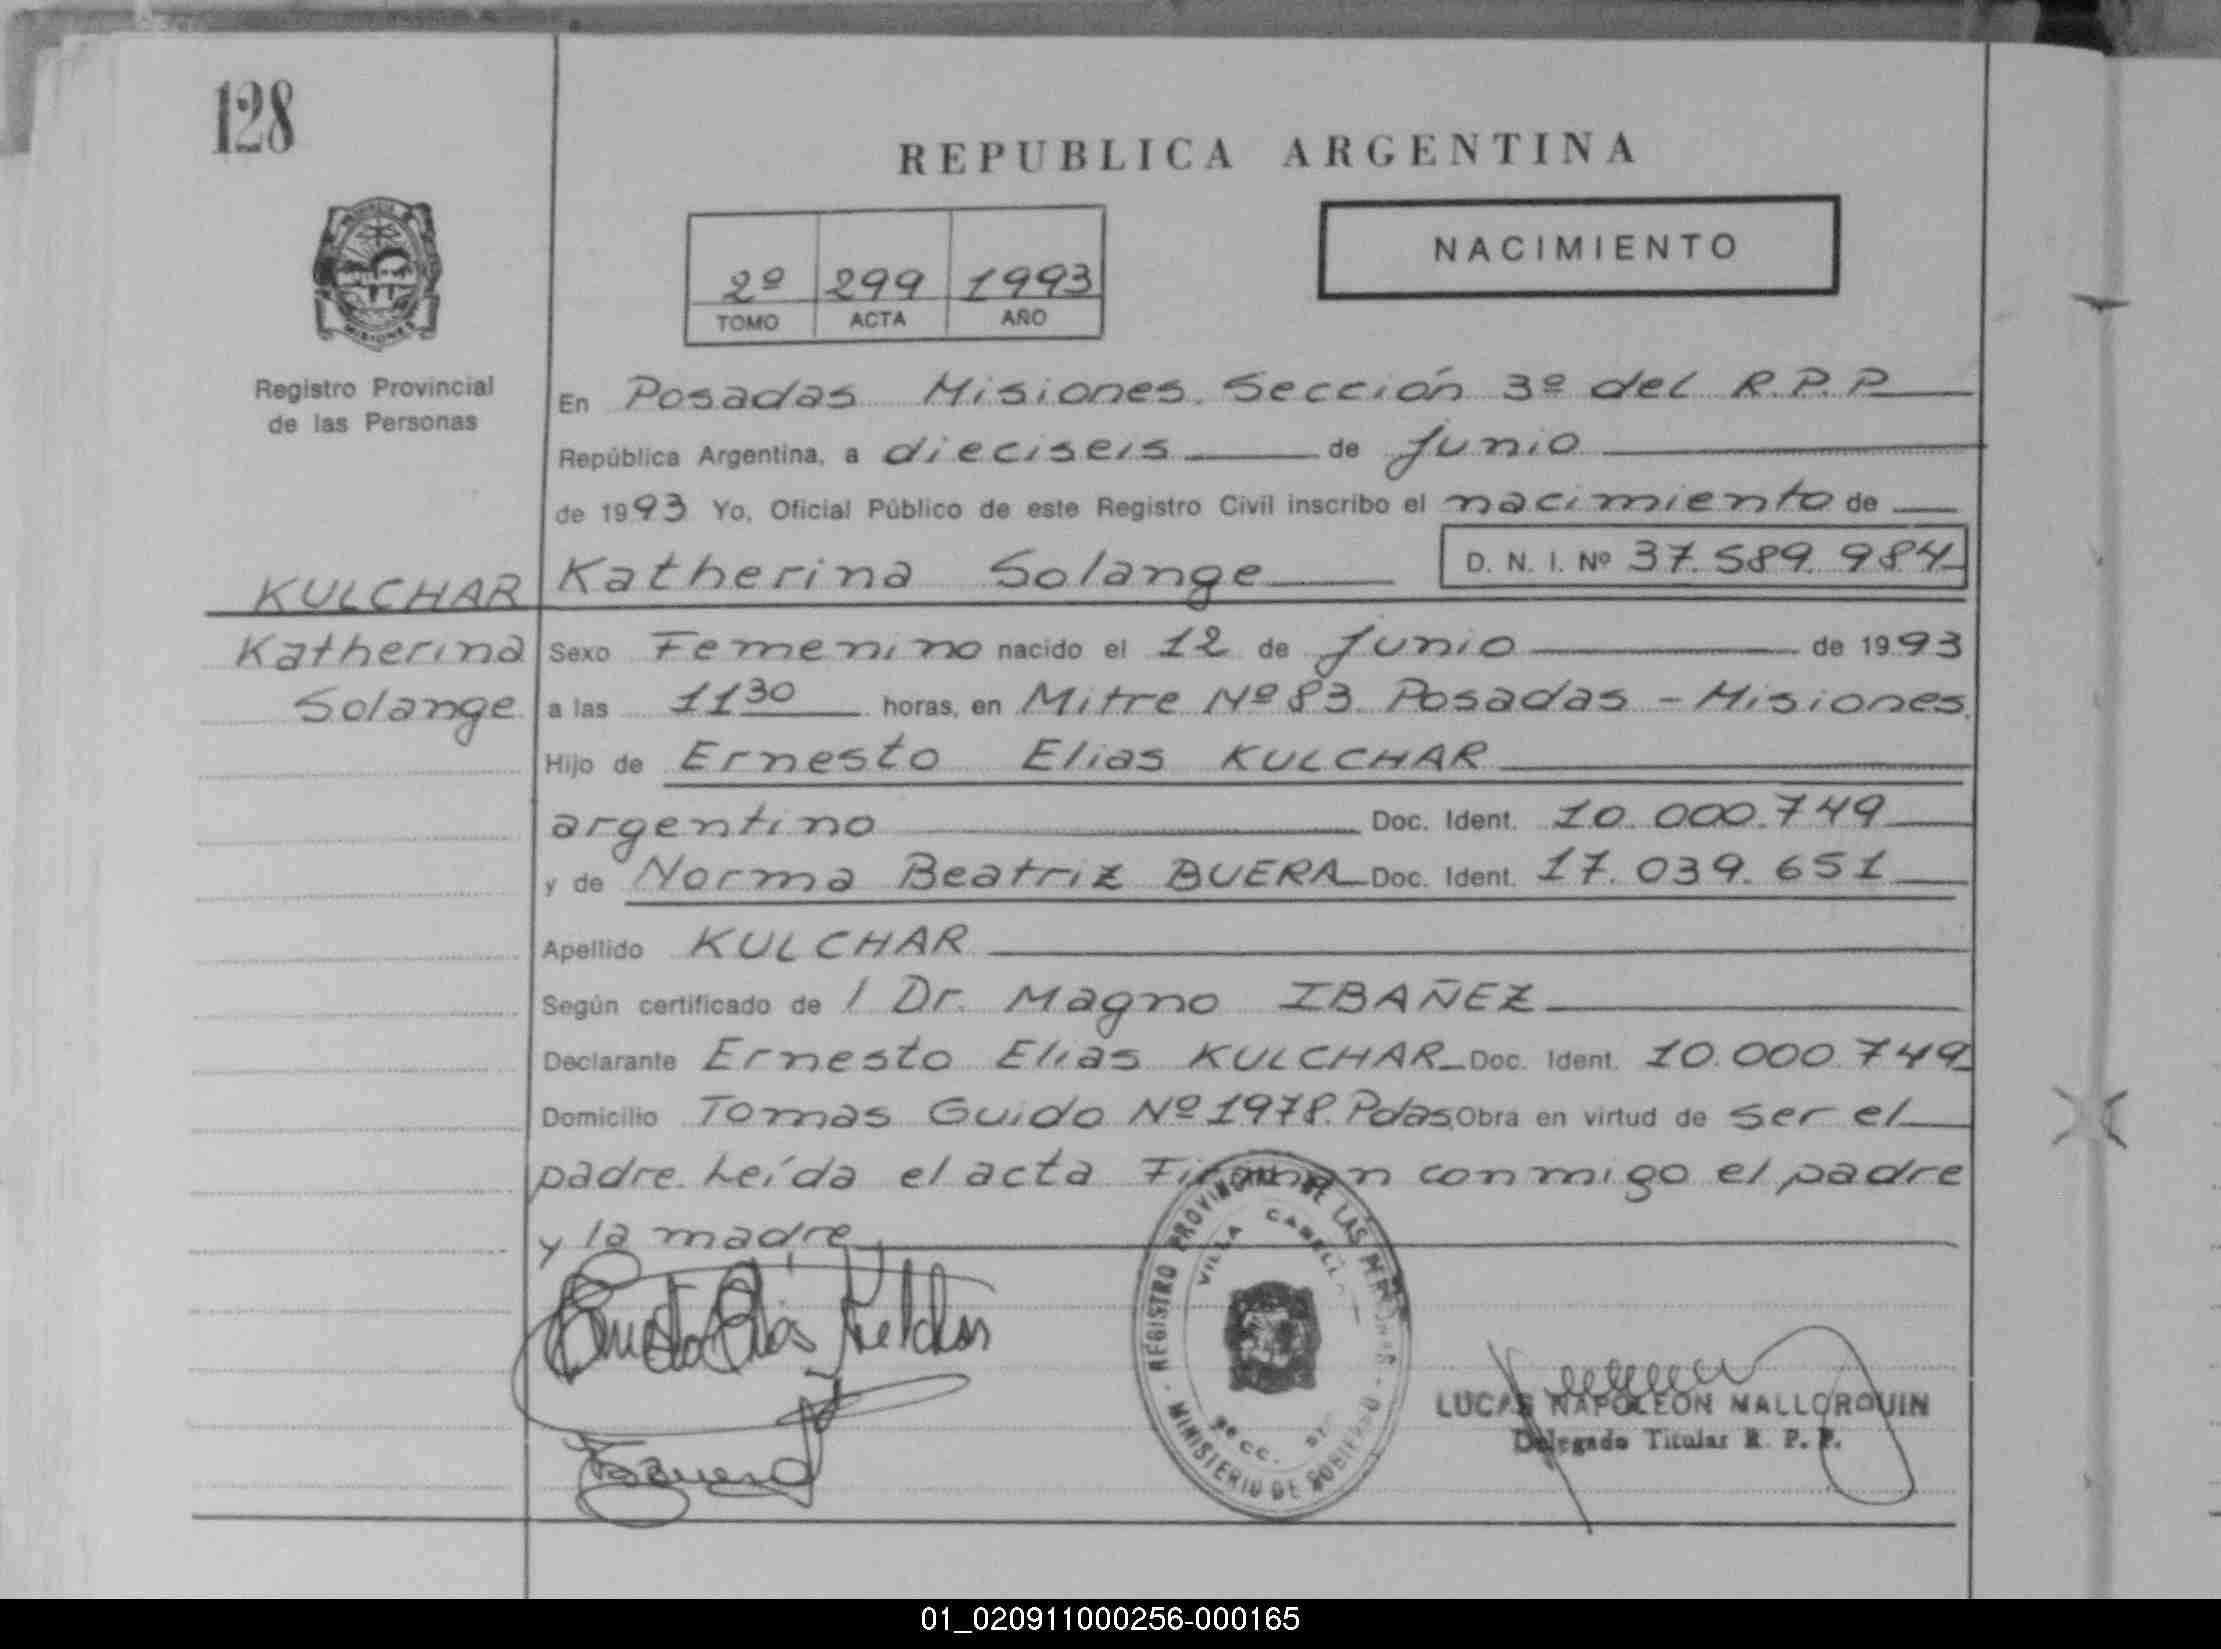 128
REPUBLICA ARGENTINA
NACIMIENTO
2º 299 1993
TOMO ACTA AÑO
MISIONES
Registro Provincial
de las Personas
En Posadas Misiones. Sección 3º del R.P.P.
República Argentina, a dieciseis de Junio
de 1993 Yo, Oficial Público de este Registro Civil inscribo el nacimiento de
Katherina Solange D. N. I. Nº 37.589.984
KULCHAR
Katherina
Solange
Sexo Femenino nacido el 12 de Junio de 1993
a las 11 30 horas, en Mitre Nº 83. Posadas - Misiones.
Hijo de Ernesto Elias KULCHAR
argentino Doc. Ident. 10.000.749
y de Norma Beatriz BUERA Doc. Ident. 17.039.651
Apellido KULCHAR
Según certificado de / Dr. Magno IBAÑEZ
Declarante Ernesto Elias KULCHAR Doc. Ident. 10.000.749
Domicilio Tomas Guido Nº 1978. Pdas. Obra en virtud de ser el
padre. Leída el acta Firman conmigo el padre
y la madre
REGISTRO PROVINCIAL DE LAS PERSONAS
VILLA
MINISTERIO DE GOBIERNO
LUCAS NAPOLEON MALLORQUIN
Delegado Titular R. P. P.
01_020911000256-000165